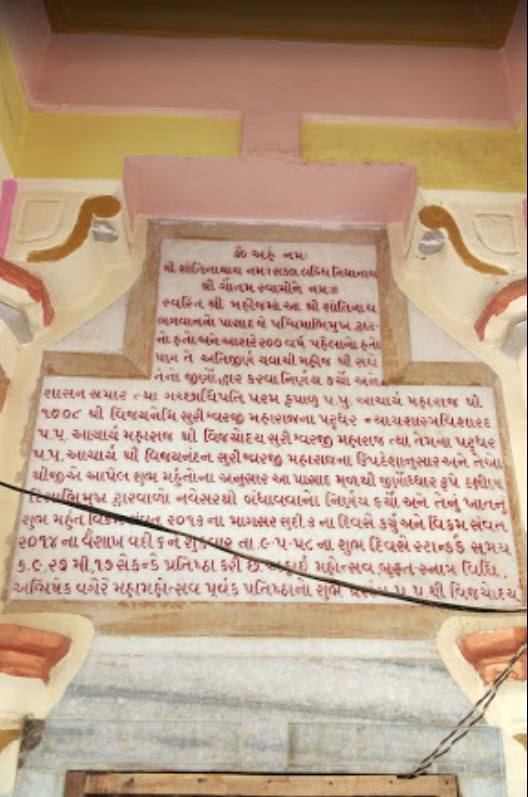 ૐ અર્હં નમઃ
શ્રી શાંતિનાથાય નમઃ સકલ લબ્ધિ નિધાનાય
શ્રી ગૌતમ સ્વામીને નમઃ
સ્વસ્તિ શ્રી મહીજમાં આ શ્રી શાંતિનાથ
ભગવાનનો પ્રાસાદ જે પશ્ચિમાભિમુખ દ્વાર-
નો હતો અને આશરે ૨૦૦ વર્ષ પહેલાનો હતો
પણ તે અતિજીર્ણ થવાથી મહીજ શ્રી સંઘે
તેનો જીર્ણોદ્ધાર કરવા નિર્ણય કર્યો અને
શાસન સમ્રાટ તથા ગચ્છાધિપતિ પરમ કૃપાળુ પ.પૂ. આચાર્ય મહારાજ શ્રી.
૧૦૦૮ શ્રી વિજયનેમિ સુરીશ્વરજી મહારાજના પટ્ટધર ન્યાયશાસ્ત્રવિશારદ
પ.પૂ. આચાર્ય મહારાજ શ્રી વિજયોદય સુરીશ્વરજી મહારાજ તથા તેમના પટ્ટધર
પ.પૂ. આચાર્ય શ્રી વિજયનંદન સુરીશ્વરજી મહારાજના ઉપદેશાનુસાર અને તેઓ
શ્રીજીએ આપેલ શુભ મર્હુતોના અનુસાર આ પ્રાસાદ મૂળથી જીર્ણોધ્ધાર રૂપે
દ્વારવાળો નવેસરથી બંધાવવાનો નિર્ણય કર્યો અને તેનું ખાતન
શુભ મર્હુત વિક્રમ સંવત ૨૦૧૩ ના માગસર સુદી ૩ ના દિવસે કર્યું અને વિક્રમ સંવત
૨૦૧૪ ના વૈશાખ વદી ૬ ને શુક્રવાર તા. ૯-૫-૫૮ ના શુભ દિવસે સ્ટાન્ડર્ડ સમય
ક.૯.૨૭ મી.૧૭ સેકન્ડે પ્રતિષ્ઠા કરી છે. અઠ્ઠાઇ મહોત્સવ બૃહત સ્નાત્ર વિધિ,
અભિષેક વગેરે મહામહોત્સવ પૂર્વક પ્રતિષ્ઠાનો શુભ પ.પૂ શ્રી વિજયોદય